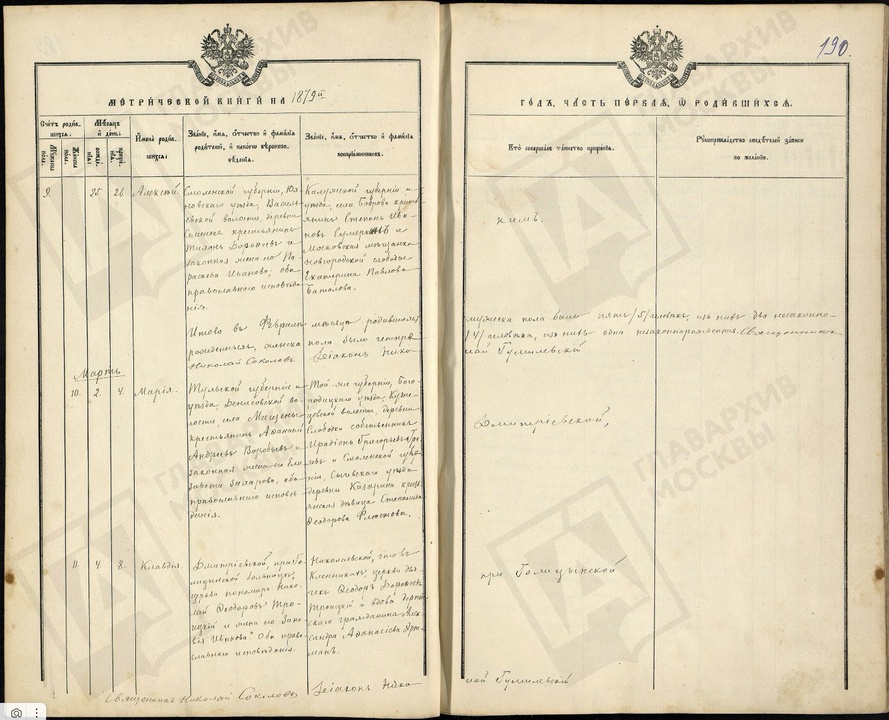 190.
МЕТРИЧЕСКОЙ КНИГИ НА 1879й
ГОДЪ, ЧАСТЬ ПЕРВАЯ, О РОДИВШИХСЯ.
Счетъ родившихся.
Мужеска пола.
Женска пола.
Мѣсяцъ и день.
рожденія.
крещенія.
Имена родившихся.
Званіе, имя, отчество и фамилія родителей, и какого вѣроисповѣданія.
Званіе, имя, отчество и фамилія воспріемниковъ.
Кто совершалъ таинство крещенія.
Рукоприкладство свидѣтелей записи по желанію.
9.
25. 26.
Алексѣй.
Смоленской губерніи, Юх-
новскаго уѣзда, Василь-
евской волости, деревни
крестьянинъ
Тихонъ Дорофеевъ и
законная жена его Па-
раскева Иванова; оба
православнаго исповѣда-
нія.
Калужской губерніи и
уѣзда, села Боброва кресть-
янинъ Степанъ Ива-
новъ и
Московская мѣщанка
Новгородской слободы
Екатерина Павлова
Баталова.
кимъ.
Итого въ Февралѣ мѣсяцѣ родившихся мужеска пола было пять /5/ человѣкъ, изъ нихъ два незаконно-
рожденныхъ, женска пола было четыре /4/ человѣка, изъ нихъ одна незаконнорожденная. Священникъ
Николай Соколовъ Діаконъ Нико лай Гумилевскій
Мартъ
10. 2. 4.
Марія.
Тульской губерніи и
уѣзда, Денисовской во-
лости, село
крестьянинъ Афанасій
Андреевъ Воробьевъ и
законная жена его Ели-
завета Захарова, оба
православнаго исповѣ-
данія.
Той же губерніи, Бого-
родицкаго уѣзда
волости, деревни
Слободки собственникъ
Иродіонъ Григорьевъ
и Смоленской губер-
ніи, Сычевскаго уѣзда
деревни Казарина кресть-
янская дѣвица Степанида
Ѳеодорова
Дмитріевской,
11. 4. 8.
Клавдія.
Дмитріевской, при Го-
лицынской больницѣ,
церкви пономарь Нико-
лай Ѳеодоровъ Тро-
ицкій и жена его Зино-
вія Иванова. Оба право-
славнаго исповѣданія.
Николаевской, что въ
Кленникахъ, церкви дья-
чекъ Ѳеодоръ
Троицкій и вдова
гражданина Алек-
сандра Афанасіева
при Голицынской
Священникъ Николай Соколовъ Діаконъ Нико лай Гумилевскій
ГЛАВАРХИВ МОСКВЫ